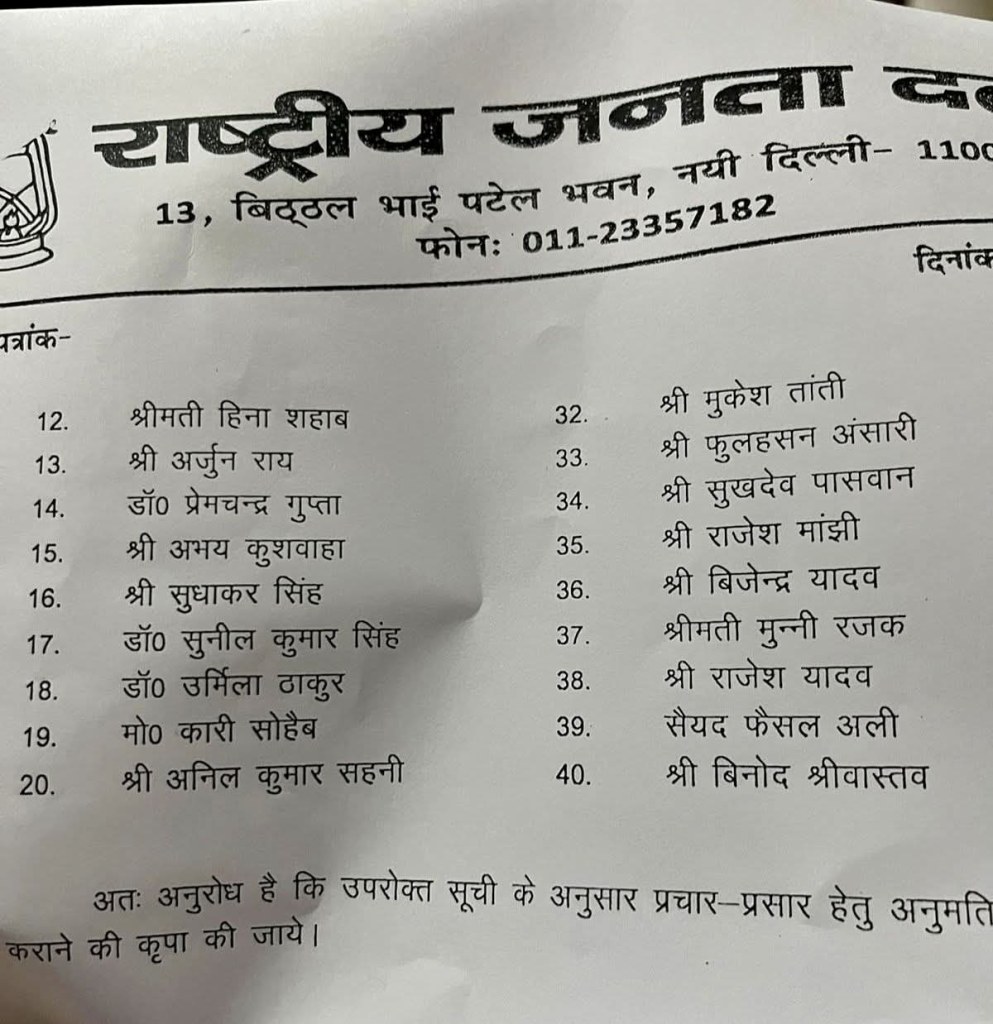 राष्ट्रीय जनता
13, बिठ्ठल भाई पटेल भवन, नयी दिल्ली- 1100
फोनः 011-23357182
दिनांक
पत्रांक-
12. श्रीमती हिना शहाब
13. श्री अर्जुन राय
14. डॉ0 प्रेमचन्द्र गुप्ता
15. श्री अभय कुशवाहा
16. श्री सुधाकर सिंह
17. डॉ0 सुनील कुमार सिंह
18. डॉ0 उर्मिला ठाकुर
19. मो0 कारी सोहैब
20. श्री अनिल कुमार सहनी
32. श्री मुकेश तांती
33. श्री फुलहसन अंसारी
34. श्री सुखदेव पासवान
35. श्री राजेश मांझी
36. श्री बिजेन्द्र यादव
37. श्रीमती मुन्नी रजक
38. श्री राजेश यादव
39. सैयद फैसल अली
40. श्री बिनोद श्रीवास्तव
अतः अनुरोध है कि उपरोक्त सूची के अनुसार प्रचार-प्रसार हेतु अनुमति
कराने की कृपा की जाये।